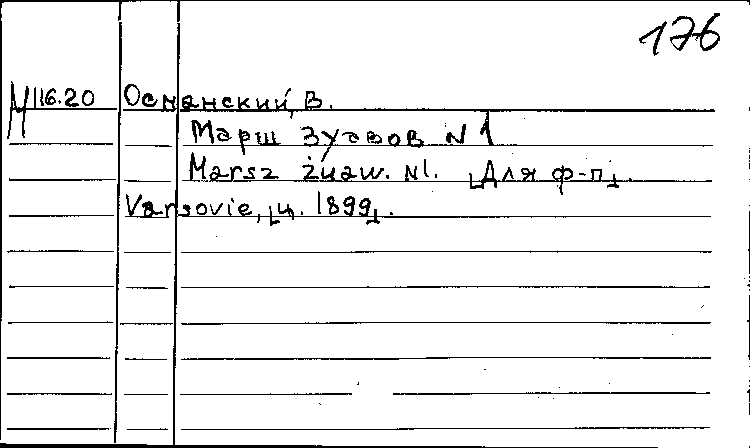 176
М 116.20 Османский, В.
Марш Зуавов N 1
Marsz żuaw. N1. [Для ф-п].
Varsovie, [ц. 1899].